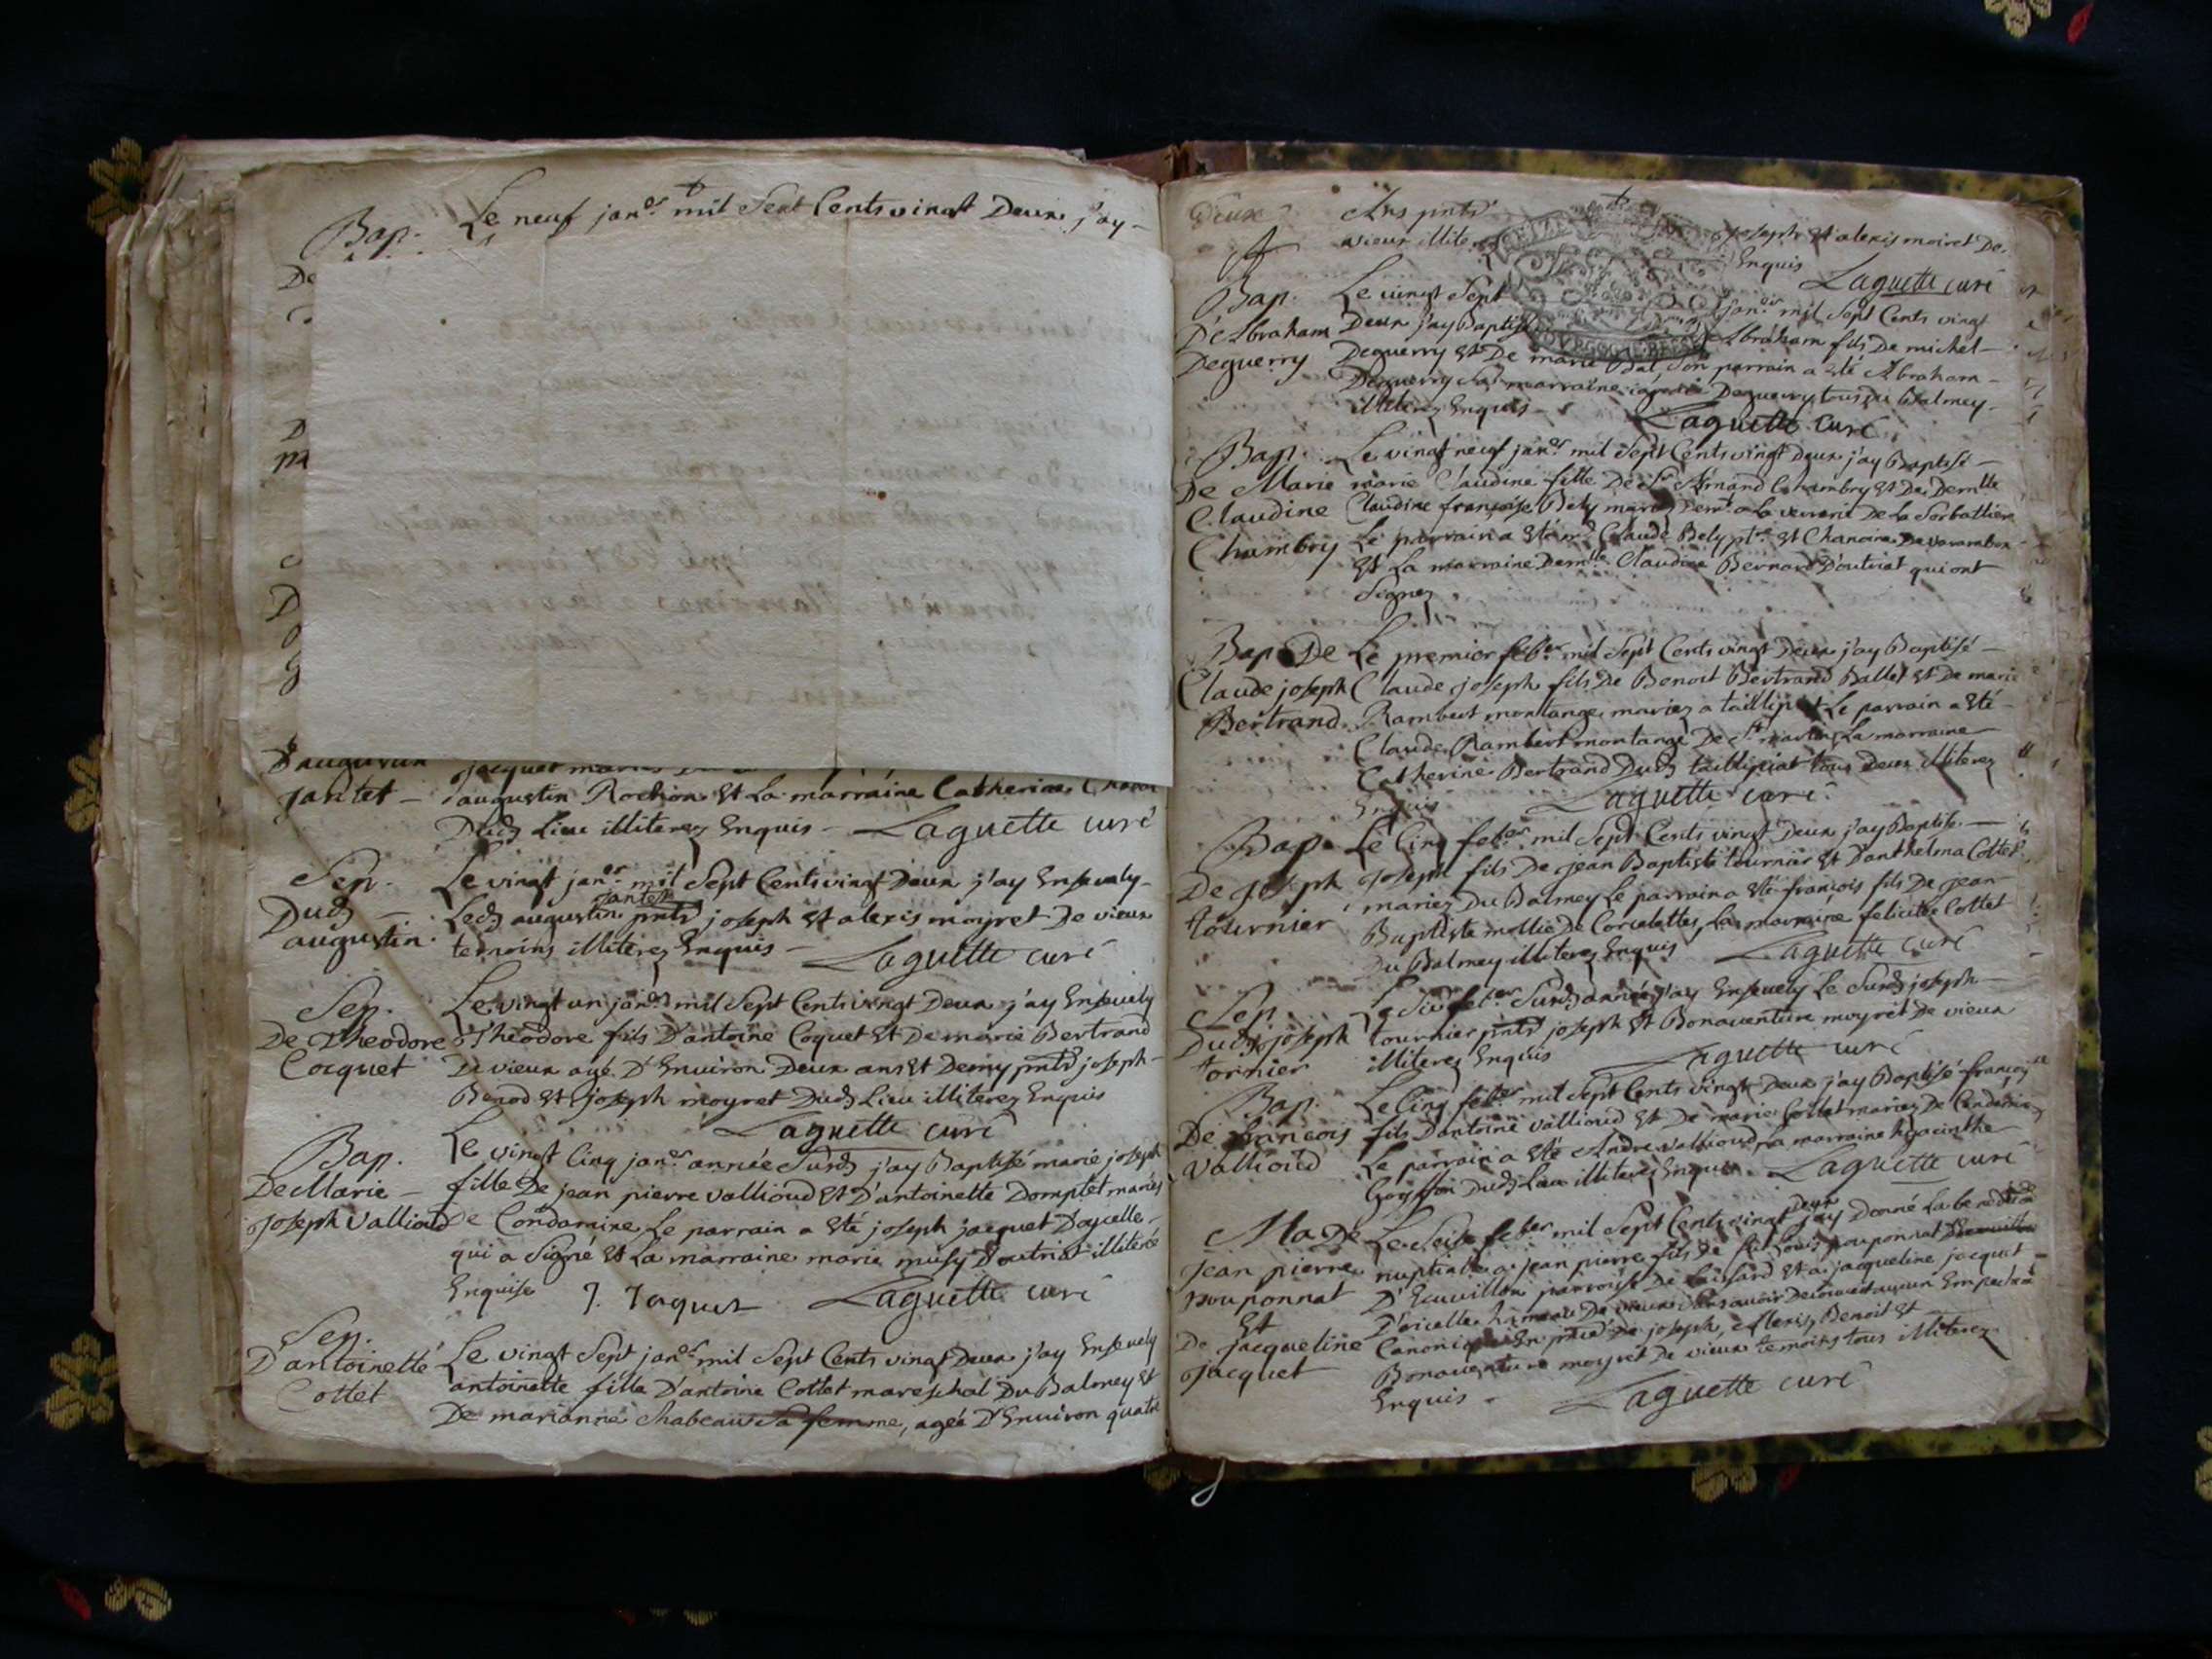 Bap. Le neuf jan.er mil Sept Cents vingt Deux j'ay
De
D
m
D
D'augustin jacquet
jantet augustin Rochon Et La marraine Catherine
Dud Lieu illiterez Enquis Laguette curé
Sep. Le vingt jan.er mil Sept Cents vingt Deux j'ay Ensevely
Dud Led augustin jantet pnts joseph Et alexis moyret De vieux
augustin. temoins illiterez Enquis Laguette curé
Sep. Le vingt un jan.er mil Sept Cents vingt Deux j'ay Ensevely
De Theodore Theodore fils D'antoine Coquet Et De marie Bertrand
Cocquet De vieux agé D'Environ Deux ans Et Demy pnts joseph
Benod Et joseph moyret Dud Lieu illiterez Enquis
Laguette curé
Bap. Le vingt Cinq jan.er année Susd j'ay Baptisé marie joseph
De Marie fille De jean pierre vallioud Et D'antoinette Domptet mariés
joseph Vallioud De Condamine Le parrain a Eté joseph jacquet D'oycelle
qui a Signé Et La marraine marie musy D'outriat illiterée
Enquise J. Jaquet Laguette curé
Sep.
D'antoinette Le vingt Sept jan.er mil Sept Cents vingt Deux j'ay Ensevely
Cottet antoinette fille D'antoine Cottet mareschal Du Balmey Et
De marianne Chabeau Sa femme, agée D'Environ quatre
Deux Ans pnts joseph Et alexis moiret De
vieux illite Enquis
Laguette curé
Bap. Le vingt Sept jan.er mil Sept Cents vingt
D'Abraham Deux j'ay Baptisé Abraham fils De michel
Deguerry Deguerry Et De marie Bal, Son parrain a Eté Abraham
Deguerry Sa marraine Deguerry tous Du Balmey
illiterez Enquis Laguette Curé
Bap. Le vingt neuf jan.er mil Sept Cents vingt Deux j'ay Baptisé
De Marie marie Claudine fille De Sr Armand Chambry Et De Demlle
Claudine Claudine françoise Bely mariez a La verrerie De La
Chambry Le parrain a Eté mr Claude Bely ptre Et Chanoine De varambon
Et La marraine Demlle Claudine Bernard D'outriat qui ont
Signez
Bap De Le premier feb.er mil Sept Cents vingt Deux j'ay Baptisé
Claude joseph Claude joseph fils De Benoit Bertrand Ballet Et De marie
Bertrand Rambert montange mariez a taillipiat Le parrain a Eté
Claude Rambert montange De St martin La marraine
Catherine Bertrand Dud taillipiat tous Deux illiterez
Enquis Laguette curé
Bap. Le Cinq feb.er mil Sept Cents vingt Deux j'ay Baptisé
De joseph joseph fils De jean Baptiste tournier Et D'anthelma Cottet
tournier mariez Du Balmey Le parrain a Eté françois fils De jean
Baptiste mollie De Corcelettes La marraine felicité Cottet
Du Balmey illiterez Enquis Laguette curé
Sep. Le Six feb.er Susd année j'ay Ensevely Le Susd joseph
Dud joseph tournier pnts joseph Et Bonaventure moyret De vieux
tornier illiterez Enquis Laguette curé
Bap. Le Cinq feb.er mil Sept Cents vingt Deux j'ay Baptisé françois
De françois fils D'antoine vallioud Et De marie Cottet mariez De Condamine
Vallioud Le parrain a Eté Andre vallioud La marraine hyacinthe
Goyffon Dud Lieu illiterez Enquis Laguette curé
Ma De Le Seize feb.er mil Sept Cents vingt Deux j'ay Donné La benediction
jean pierre nuptiale a jean pierre fils De Louis pouponnat
pouponnat D'Ecuvillon parroisse De Laissard Et a jacqueline jacquet
Et D'oicelle hameau De vieux Sans avoir Decouvert aucun Empechemt
De jacqueline Canonique En pnce De joseph, Alexis, Benoit Et
jacquet Bonaventure moyret De vieux temoins tous illiterez
Enquis Laguette curé